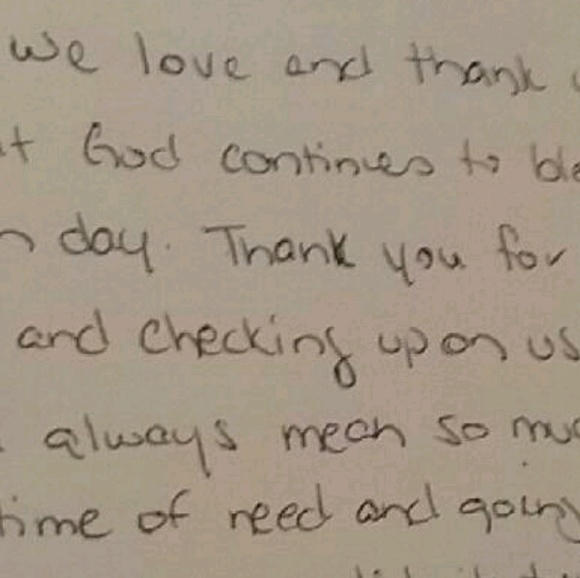 we love and thank
God continues to
day. Thank you for
and checking upon us
always mean so
time of need and going